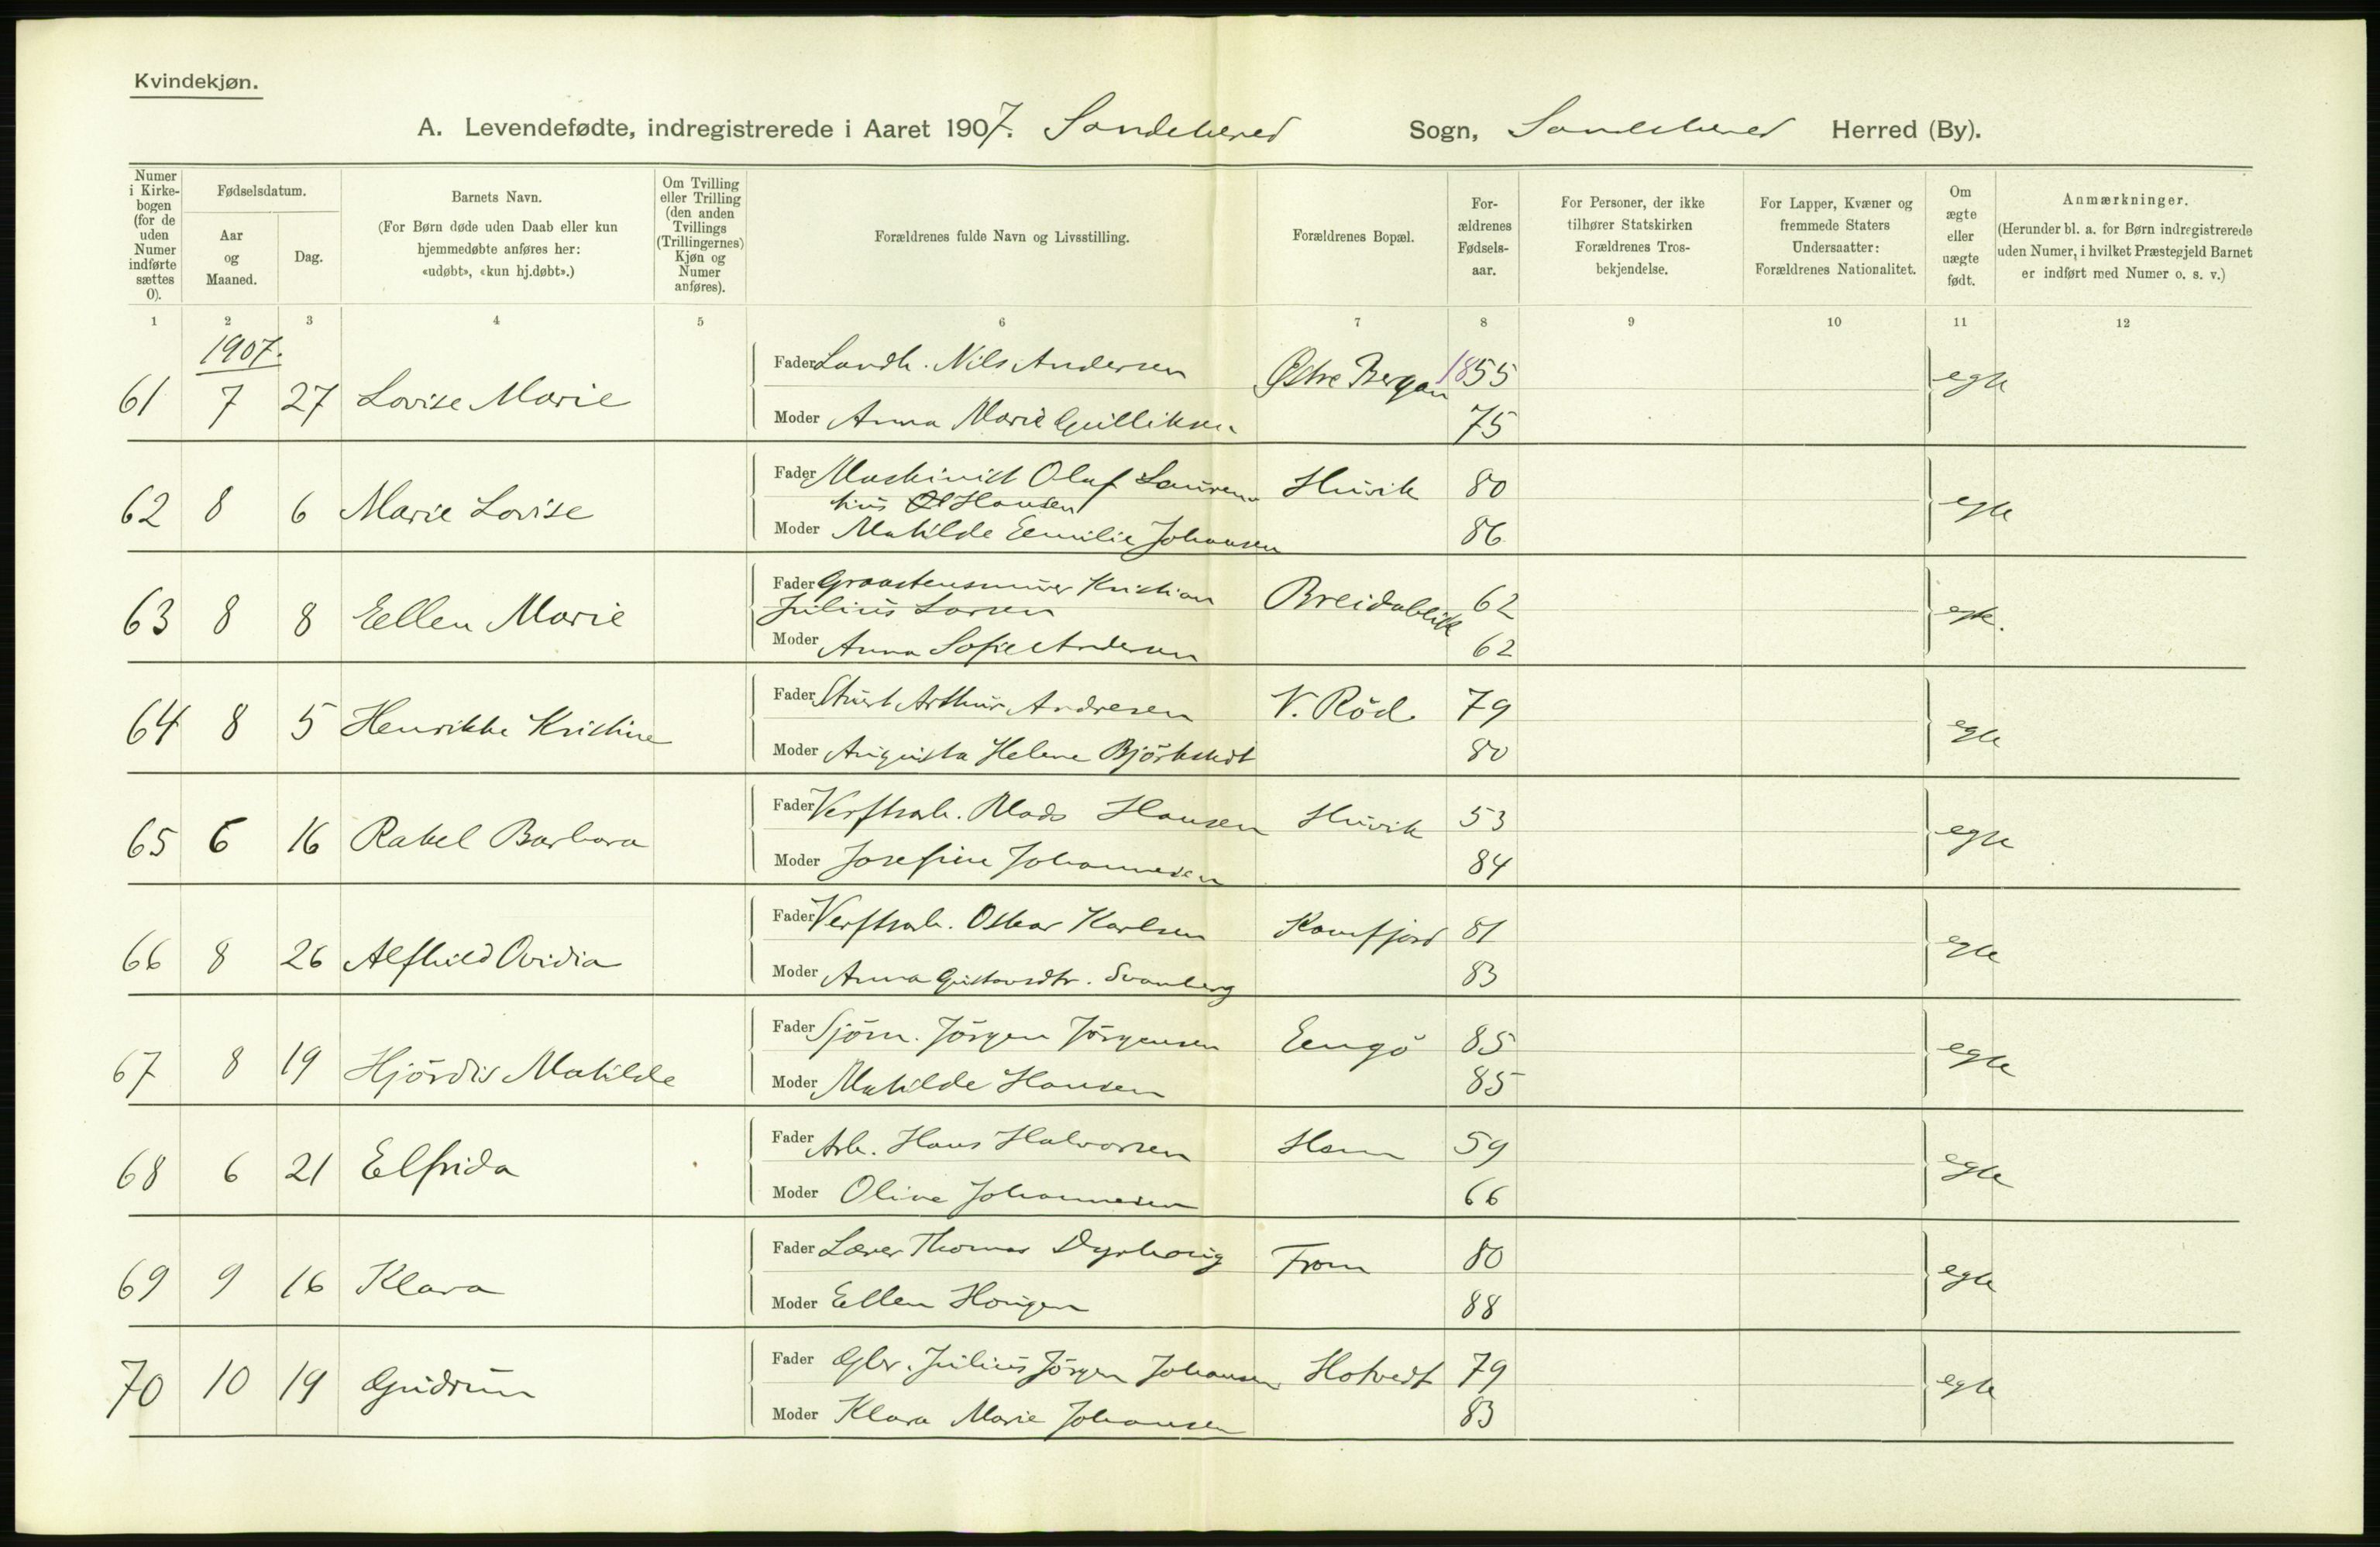 Kvindekjøn.
A. Levendefødte, indregistrerede i Aaret 1907. Sandeherred Sogn, Sandeherred Herred (By).
Numer i Kirkebogen (for de uden Numer indførte sættes 0).
Fødselsdatum.
Aar og Maaned.
Dag.
Barnets Navn.
(For Børn døde uden Daab eller kun hjemmedøbte anføres her: «udøbt», «kun hj.døbt».)
Om Tvilling eller Trilling (den anden Tvillings (Trillingernes) Kjøn og Numer anføres).
Forældrenes fulde Navn og Livsstilling.
Forældrenes Bopæl.
Forældrenes Fødselsaar.
For Personer, der ikke tilhører Statskirken Forældrenes Trosbekjendelse.
For Lapper, Kvæner og fremmede Staters Undersaatter: Forældrenes Nationalitet.
Om ægte eller uægte født.
Anmærkninger.
(Herunder bl. a. for Børn indregistrerede uden Numer, i hvilket Præstegjeld Barnet er indført med Numer o. s. v.)
1 2 3 4 5 6 7 8 9 10 11 12
1907.
61 7 27 Lovise Marie Fader Landh. Nils Andersen Østre Bergan 1855 egte
Moder Anna Marie Gulliksen 75
62 8 6 Marie Lovise Fader Maskinist Olaf Lauren- Huvik 80 egte
tius Hansen
Moder Mathilde Eemilie Johansen 86
63 8 8 Eellen Marie Fader Graastensmurer Kristian Breidablik 62 egte.
Julius Larsen
Moder Anna Sofie Andersen 62
64 8 5 Henrikke Kristine Fader Stuert Arthur Andresen V. Röd 79 egte
Moder Augusta Helene Björkstedt 80
65 6 16 Rakel Barbara Fader Verftsarb. Mads Hansen Huvik 53 egte
Moder Josefine Johannesen 84
66 8 26 Alfhild Ovidia Fader Verftsarb. Oskar Karlsen Kamfjord 81 egte
Moder Anna Gustavsdtr. Svanberg 83
67 8 19 Hjördis Matilde Fader Sjöm. Jörgen Jörgensen Eengö 85 egte
Moder Matilde Hansen 85
68 6 21 Elfrida Fader Arb. Hans Halvorsen Hem 59 egte
Moder Oline Johannesen 66
69 9 16 Klara Fader Lærer Thomas Dyrhaug From 80 egte
Moder Eellen Haugen 88
70 10 19 Gudrun Fader Gbr. Julius Jörgen Johansen Hotvedt 79 egte
Moder Klara Marie Johansen 83